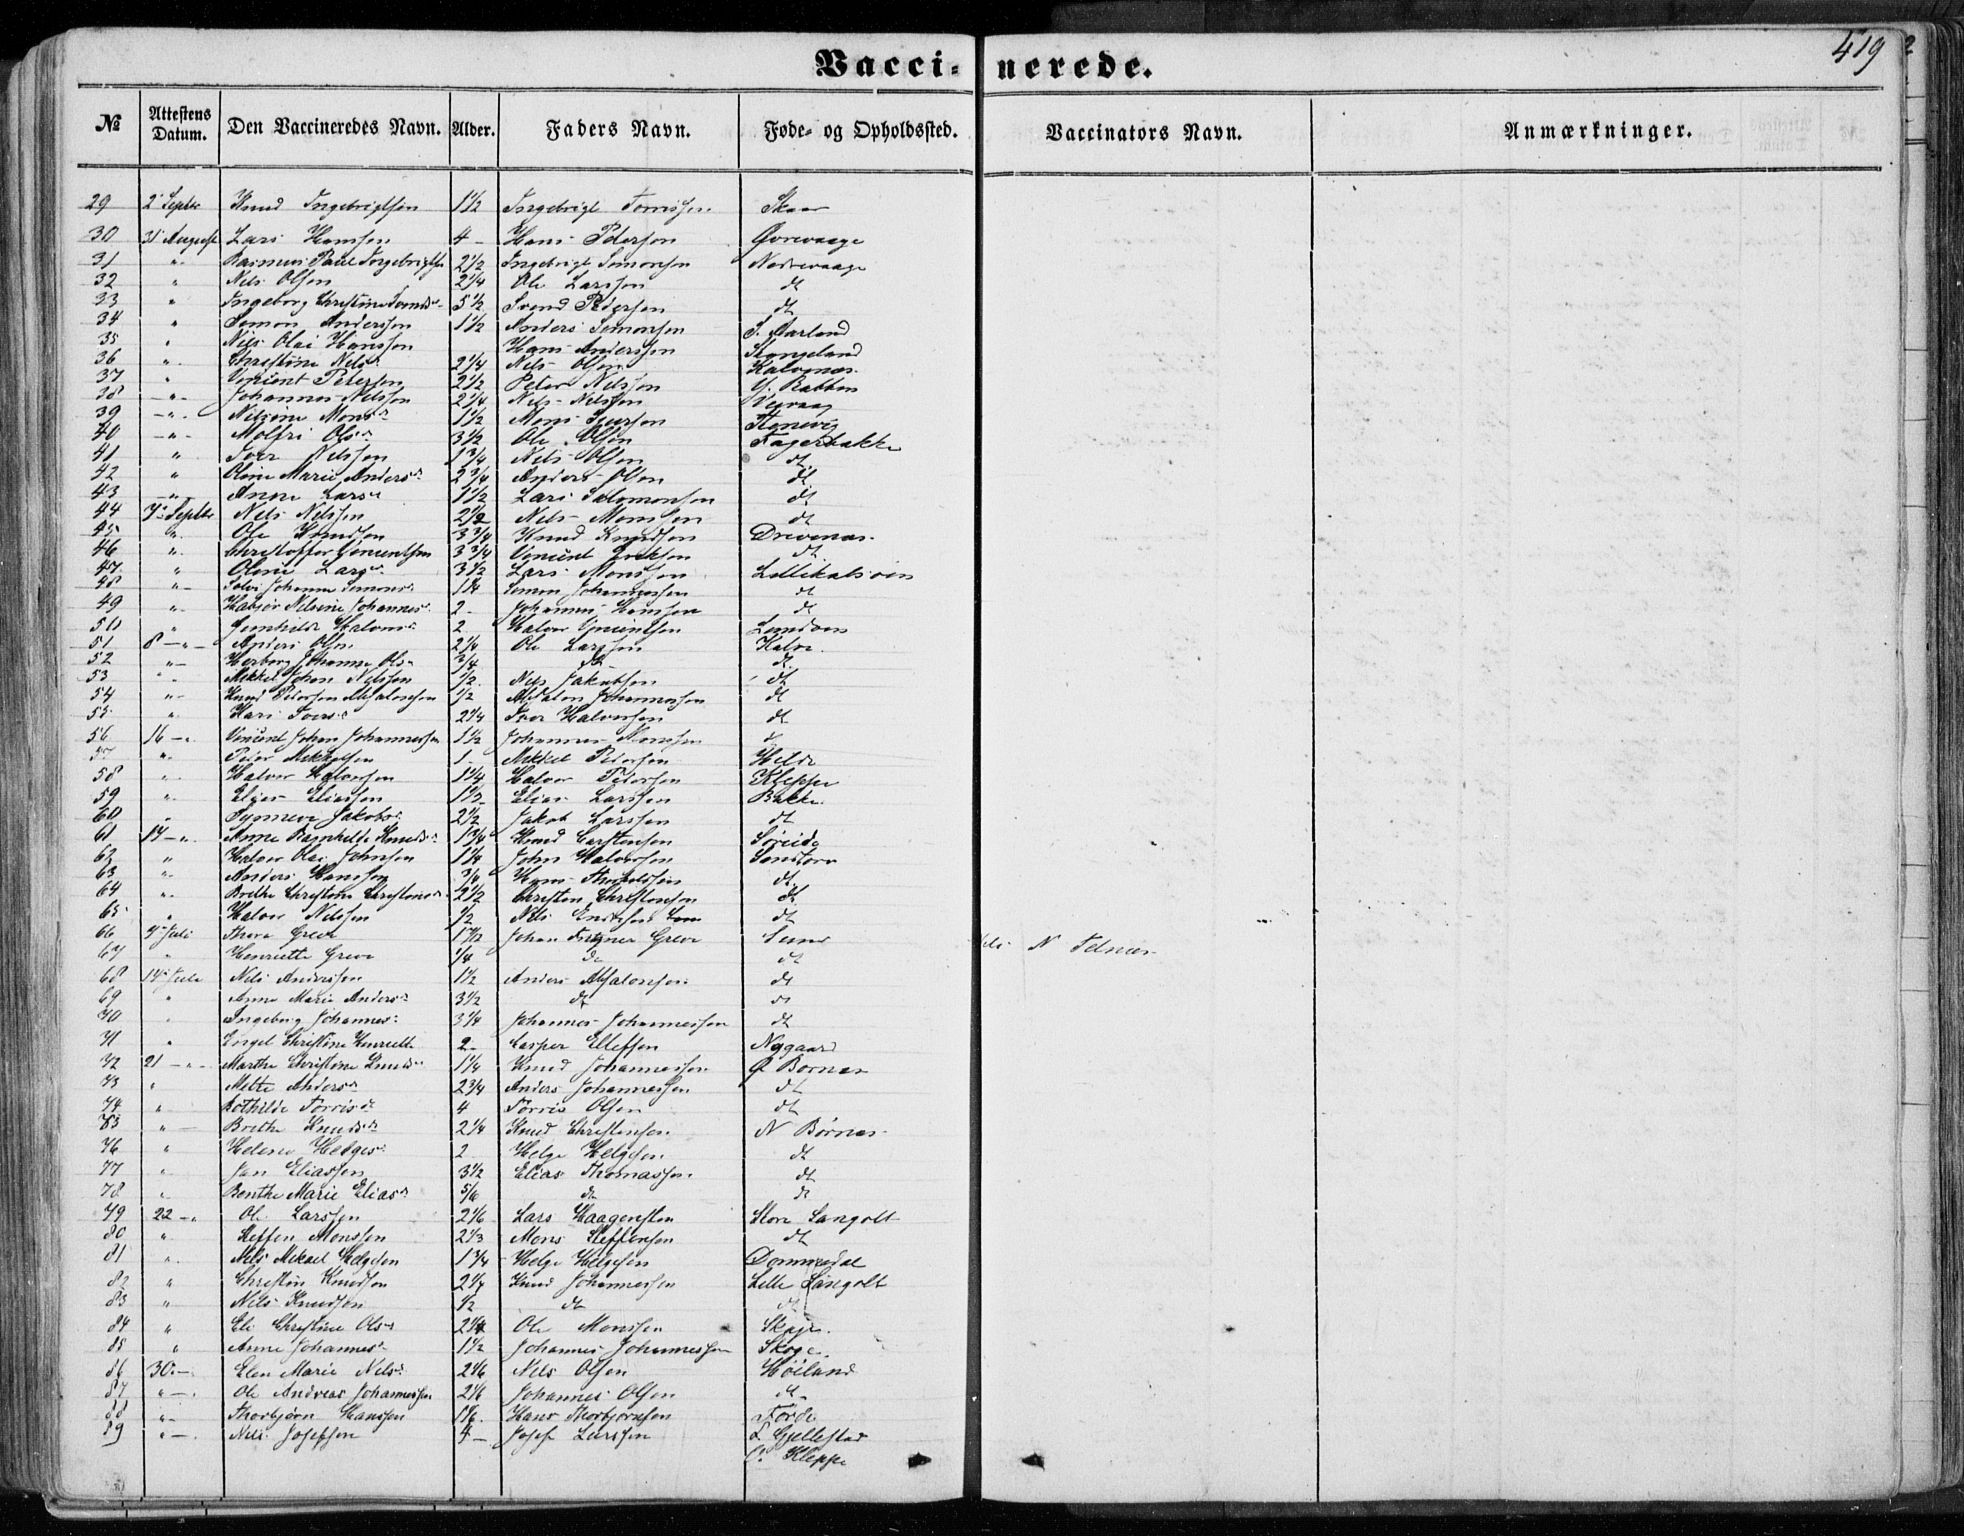 419
Vaccinerede.
№ Attestens Datum. Den Vaccineredes Navn. Alder. Faders Navn. Føde- og Opholdssted. Vaccinators Navn. Anmærkninger.
29 2 Septbr Knud Ingebrigtsen 1 1/2 Ingebrigt Skaar
30 31 August Lars Hansen 4 - Hans Peterson Øvrevaage
31 " Rasmus Paul Ingebrigts 2 1/2 Ingebrigt Simonsen Nedrevaage
32 " Nils Olsen 2 1/4 Ole Larssen dt
33 " Ingeborg Christine 5 1/2 Svend Pedersen dt
34 " Simon Anderssen 1 1/2 Anders Simonsen Aarland
35 " Nils Olai Hanssen Hans Anderssen Stangeland
36 " Christine Nilsd 2 1/4 Nils Olsen Kalvenes
37 " Vincent Petersen 2 1/2 Peter Nilssen
38 " Johannes Nilssen 2 1/4 Nils Nilssen
39 " Nilsine Monsd 1 1/2 Mons Iversen
40 " Molfri Olsd 3 1/2 Ole Olsen Fagerbakke
41 " Iver Nilssen 1 3/4 Nils Olsen dt
42 " Oline Marie Andersd 2 3/4 Anders Olsen dt
43 " Anne Larsd 1 1/2 Lars Salomonsen dt
44 7 Septbr Nils Nilssen 2 1/2 Nils Monssen dt
45 " Ole Knudsen 3 3/4 Knud Knudsen Drevenes
46 " Christoffer Vincentsen 3 3/4 Vincent dt
47 " Oline Larsd 3 1/2 Lars Monssen
48 " Johanne Simonsd 1 1/4 Simon Johannessen dt
49 " Nilsine Johannesd 2 - Johannes Hanssen dt
50 " Gunhilde Halvorsd 2 Halvor Vincentsen
51 8 - " - Anders Olsen 2 1/4 Ole Larssen
52 " Herborg Johanne Olsd 3/4 dt dt
53 " Mikkel Johan Nilssen 1/2 Nils Jakobsen dt
54 " Knud Petersen Absalonsen 1/2 Absalon Johannessen dt
55 " Kari Iversd 2 1/4 Iver Halvorsen dt
56 16 - " Vincent Johan Johannessen 1 1/2 Johannes
57 " Peter Mikkelsen 1 - Mikkel Petersen Hilde
58 " Halvor Halvorsen 1 1/4 Halvor Petersen Kleppe
59 " Elias Eliassen 1 1/2 Elias Larssen Bakke
60 " Synneve Jakobsd 2 1/2 Jakob Larssen dt
61 14 - " Anne Ragnhilde Knudsd 1 3/4 Knud Carstensen Søreide
62 " Halvor Olai Johnsen 1 1/4 John Halvorsen
63 " Anders Hanssen 3/4 Hans dt
64 " Brethe Christine Christensd 2 1/2 Christen Christensen dt
65 " Halvor Nilssen 1/2 Nils dt
66 7 Juli Thora Greve Johan Greve
67 " Henriette Greve 1/4 dt dt
N
68 14 Juli Nils Anderssen 1 1/2 Anders Absalonsen dt
69 " Anne Marie Andersd 3 1/2 dt dt
70 " Ingeborg Johannesd 3 1/4 Johannes Johannessen dt
71 " Engel Christine Henriette 2 - Casper Ellefsen Nygaard
72 21 - " - Marthe Christine Knudsd 1 1/4 Knud Johannessen Ø Børnes
73 " Mette Andersd 2 3/4 Anders Johannessen dt
74 " Bothilde Torrisd 4 Torris Olsen dt
75 " Brethe Knudsd 2 1/4 Knud Christensen N Børnes
76 " Helene Helgesd 2 Helge Helgesen dt
77 " Jan Eliassen 3 1/2 Elias Thomassen dt
78 " Benthe Marie Eliasd 5/6 dt dt
79 22 - " Ole Larssen 2 1/6 Lars Haagensten Store Langolt
80 " Steffen Monssen 2 1/3 Mons Steffensen dt
81 " Nils Mikael Helgesen 1 3/4 Helge Helgesen Dommedal
82 " Christen Knudsen 2 1/4 Knud Johannessen Lille Langolt
83 " Nils Knudsen 1/2 dt dt
84 " Eli Christine Olsd 2 1/4 Ole Monssen Skoge
85 " Anne Johannesd 1 1/2 Johannes Johannessen Skoge
86 30 - Elen Marie Nilsd 2 1/6 Nils Olsen Høiland
87 " Ole Andreas Johannessen 2 1/6 Johannes Olsen dt
88 " Thorbjørn Hanssen 1 1/6 Hans Thorbjørnsen Førde
89 " Nils Josefsen 4 - Josef Larssen Gjellestad
Kleppe